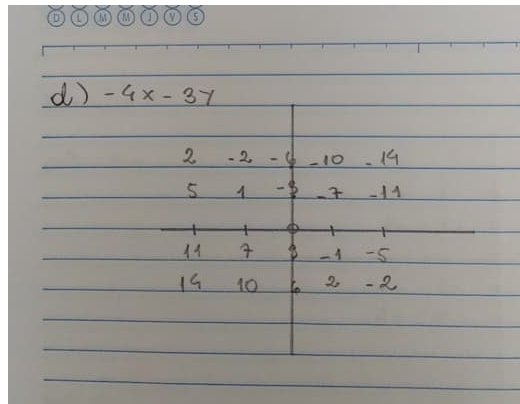 D L M M J V S
d) -4x - 3y
2 -2 -6 -10 -14
5 1 -3 -7 -11
0
11 7 3 -1 -5
14 10 6 2 -2